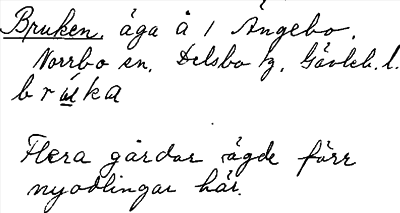 Bruken, äga å 1 Ängebo,
Norrbo sn. Delsbo tg. Gävleb. l.
bruka
Flera gårdar ägde förr
nyodlingar här.